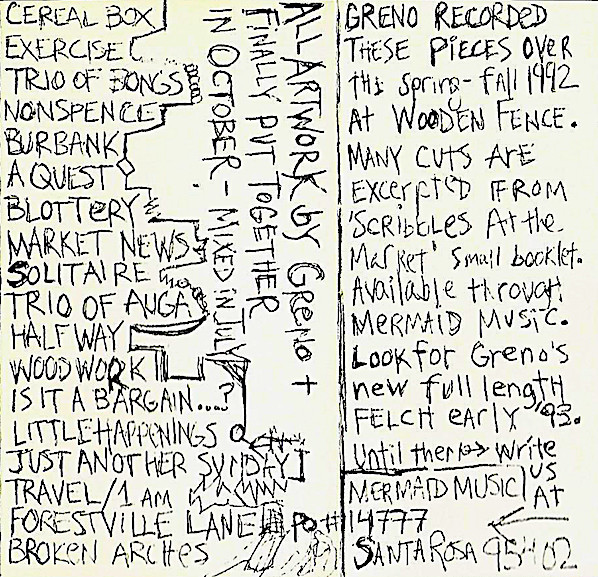 CEREAL BOX
EXERCISE
TRIO OF SONGS
NONSPENCE
BURBANK
A QUEST
BLOTTERY
MARKET NEWS
SOLITAIRE
TRIO OF AUGA
HALF WAY
WOODWORK
IS IT A BARGAIN....?
LITTLE HAPPENINGS
JUST ANOTHER SUNDAY
TRAVEL/1 AM
FORESTVILLE LANE
BROKEN ARCHES
ALL ARTWORK by Greno +
FINALLY PUT TOGETHER
IN OCTOBER - MIXED IN JULY
GRENO RECORDED
THESE PIECES OVER
this Spring - fall 1992
At WOODEN FENCE.
MANY CUTS ARE
EXCERPTED FROM
'SCRIBBLES At the
Market' Small booklet.
Available through
MERMAID MUSIC.
Look for Greno's
new full length
FELCH early '93.
Until then Write
US
MERMAID MUSIC At
P.O.#14777
SANTA ROSA 95402